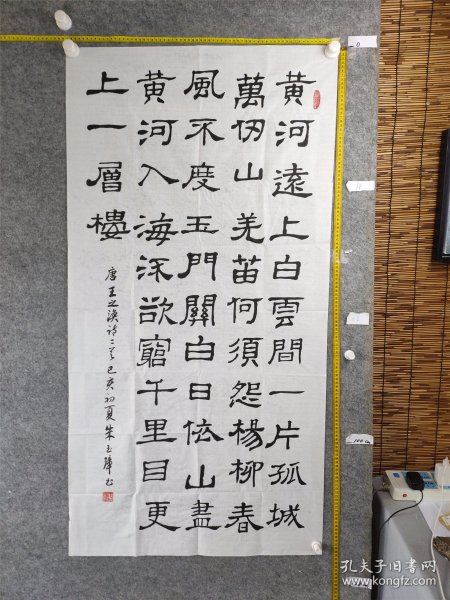 黄河遠上白雲間一片孤城
萬仞山羌笛何須怨楊柳春
風不度玉門關白日依山盡
黄河入海流欲窮千里目更
上一層樓
唐王之渙诗二首己亥初夏朱玉
孔夫子旧书网
www.kongfz.com